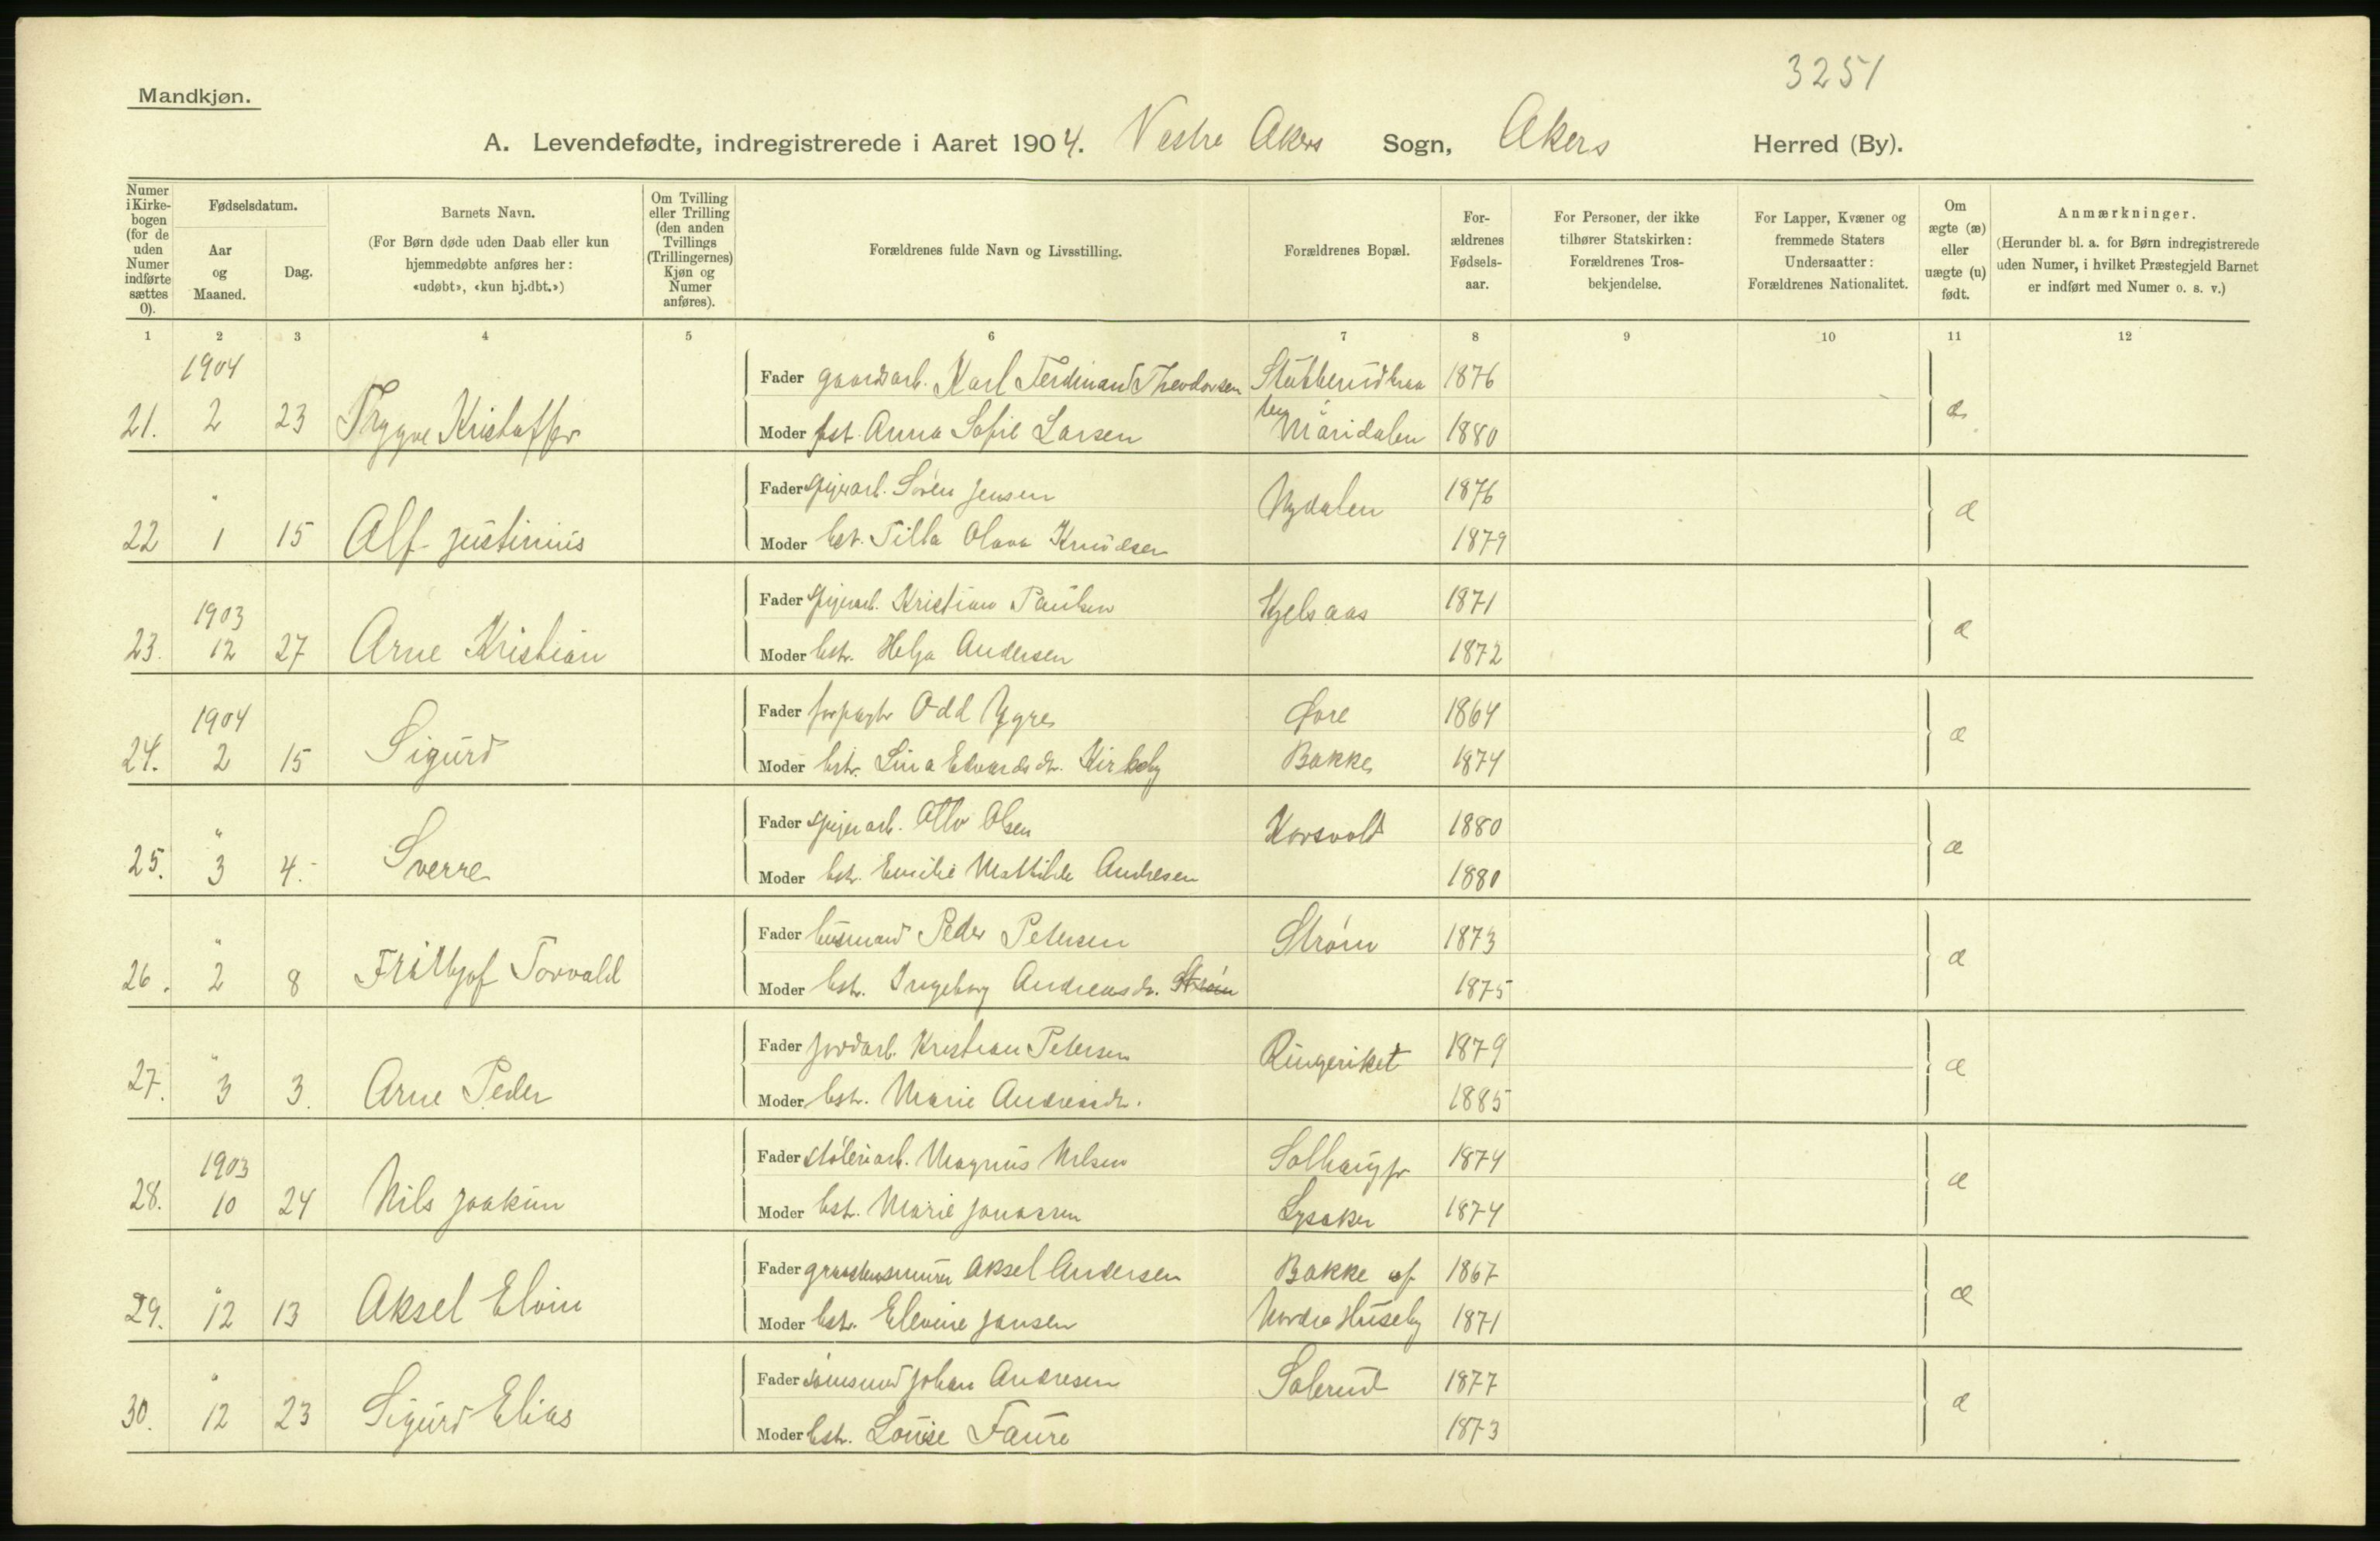 3251
Mandkjøn.
A. Levendefødte, indregistrerede i Aaret 1904. Vestre Akers Sogn, Akers Herred (By).
Numer i Kirke-bogen (for de uden Numer indførte sættes 0).
Fødselsdatum.
Aar og Maaned.
Dag.
Barnets Navn.
(For Børn døde uden Daab eller kun hjemmedøbte anføres her: «udøbt», «kun hj.dbt.»)
Om Tvilling eller Trilling (den anden Tvillings (Trillingernes) Kjøn og Numer anføres).
Forældrenes fulde Navn og Livsstilling.
Forældrenes Bopæl.
For-ældrenes Fødsels-aar.
For Personer, der ikke tilhører Statskirken: Forældrenes Tros-bekjendelse.
For Lapper, Kvæner og fremmede Staters Undersaatter: Forældrenes Nationalitet.
Om ægte (æ) eller uægte (u) født.
Anmærkninger.
(Herunder bl. a. for Børn indregistrerede uden Numer, i hvilket Præstegjeld Barnet er indført med Numer o. s. v.)
1 2 3 4 5 6 7 8 9 10 11 12
1904
Fader gaardsarb. Karl Ferdinand Theodorsen 1876
21. 2 23 Trygve Kristoffer æ
Moder hst. Anna Sofie Larsen Maridalen 1880
Fader spigerarb. Søren Jensen Nydalen 1876
22 " 1 15 Alf Justinius æ
Moder hst. Tilla Olava Knudsen 1879
Fader spigerarb. Kristian Paulsen Kjelsaas 1871
1903
23. 12 27 Arne Kristian æ
Moder hstr. Helga Andersen 1872
Fader forpagtr Odd Ygre 1864
1904
24. 2 15 Sigurd æ
Moder hstr. Lina Edvardsdtr. Kirkeby Bakke 1874
Fader spigerarb. Otto Olsen Korsvold 1880
25. " 3 4. Sverre æ
Moder hstr. Emilie Mathilde Andresen 1880
Fader husmand Peder Petersen Strøm 1873
26. " 2 8 Frithjof Torvald æ
Moder hstr. Ingeborg Andreasdr. Strøm 1875
Fader jordarb. Kristian Petersen Ringeriket 1879
27. " 3 3. Arne Peder æ
Moder hstr. Marie Andreasdr. 1885
Fader støberiarb. Magnus Nilsen Solhaug pr 1874
1903
28. 10 24 Nils Joakim æ
Moder hst. Marie Jonassen Lysaker 1874
Fader graastensmurer Aksel Andersen Bakke af 1867
29. " 12 13 Aksel Elvin æ
Moder hst. Elevine Jansen Nordre Huseby 1871
Fader sømsmed Johan Andresen Sølerud 1877
30. " 12 23 Sigurd Elias æ
Moder hstr. Louise Faure 1873